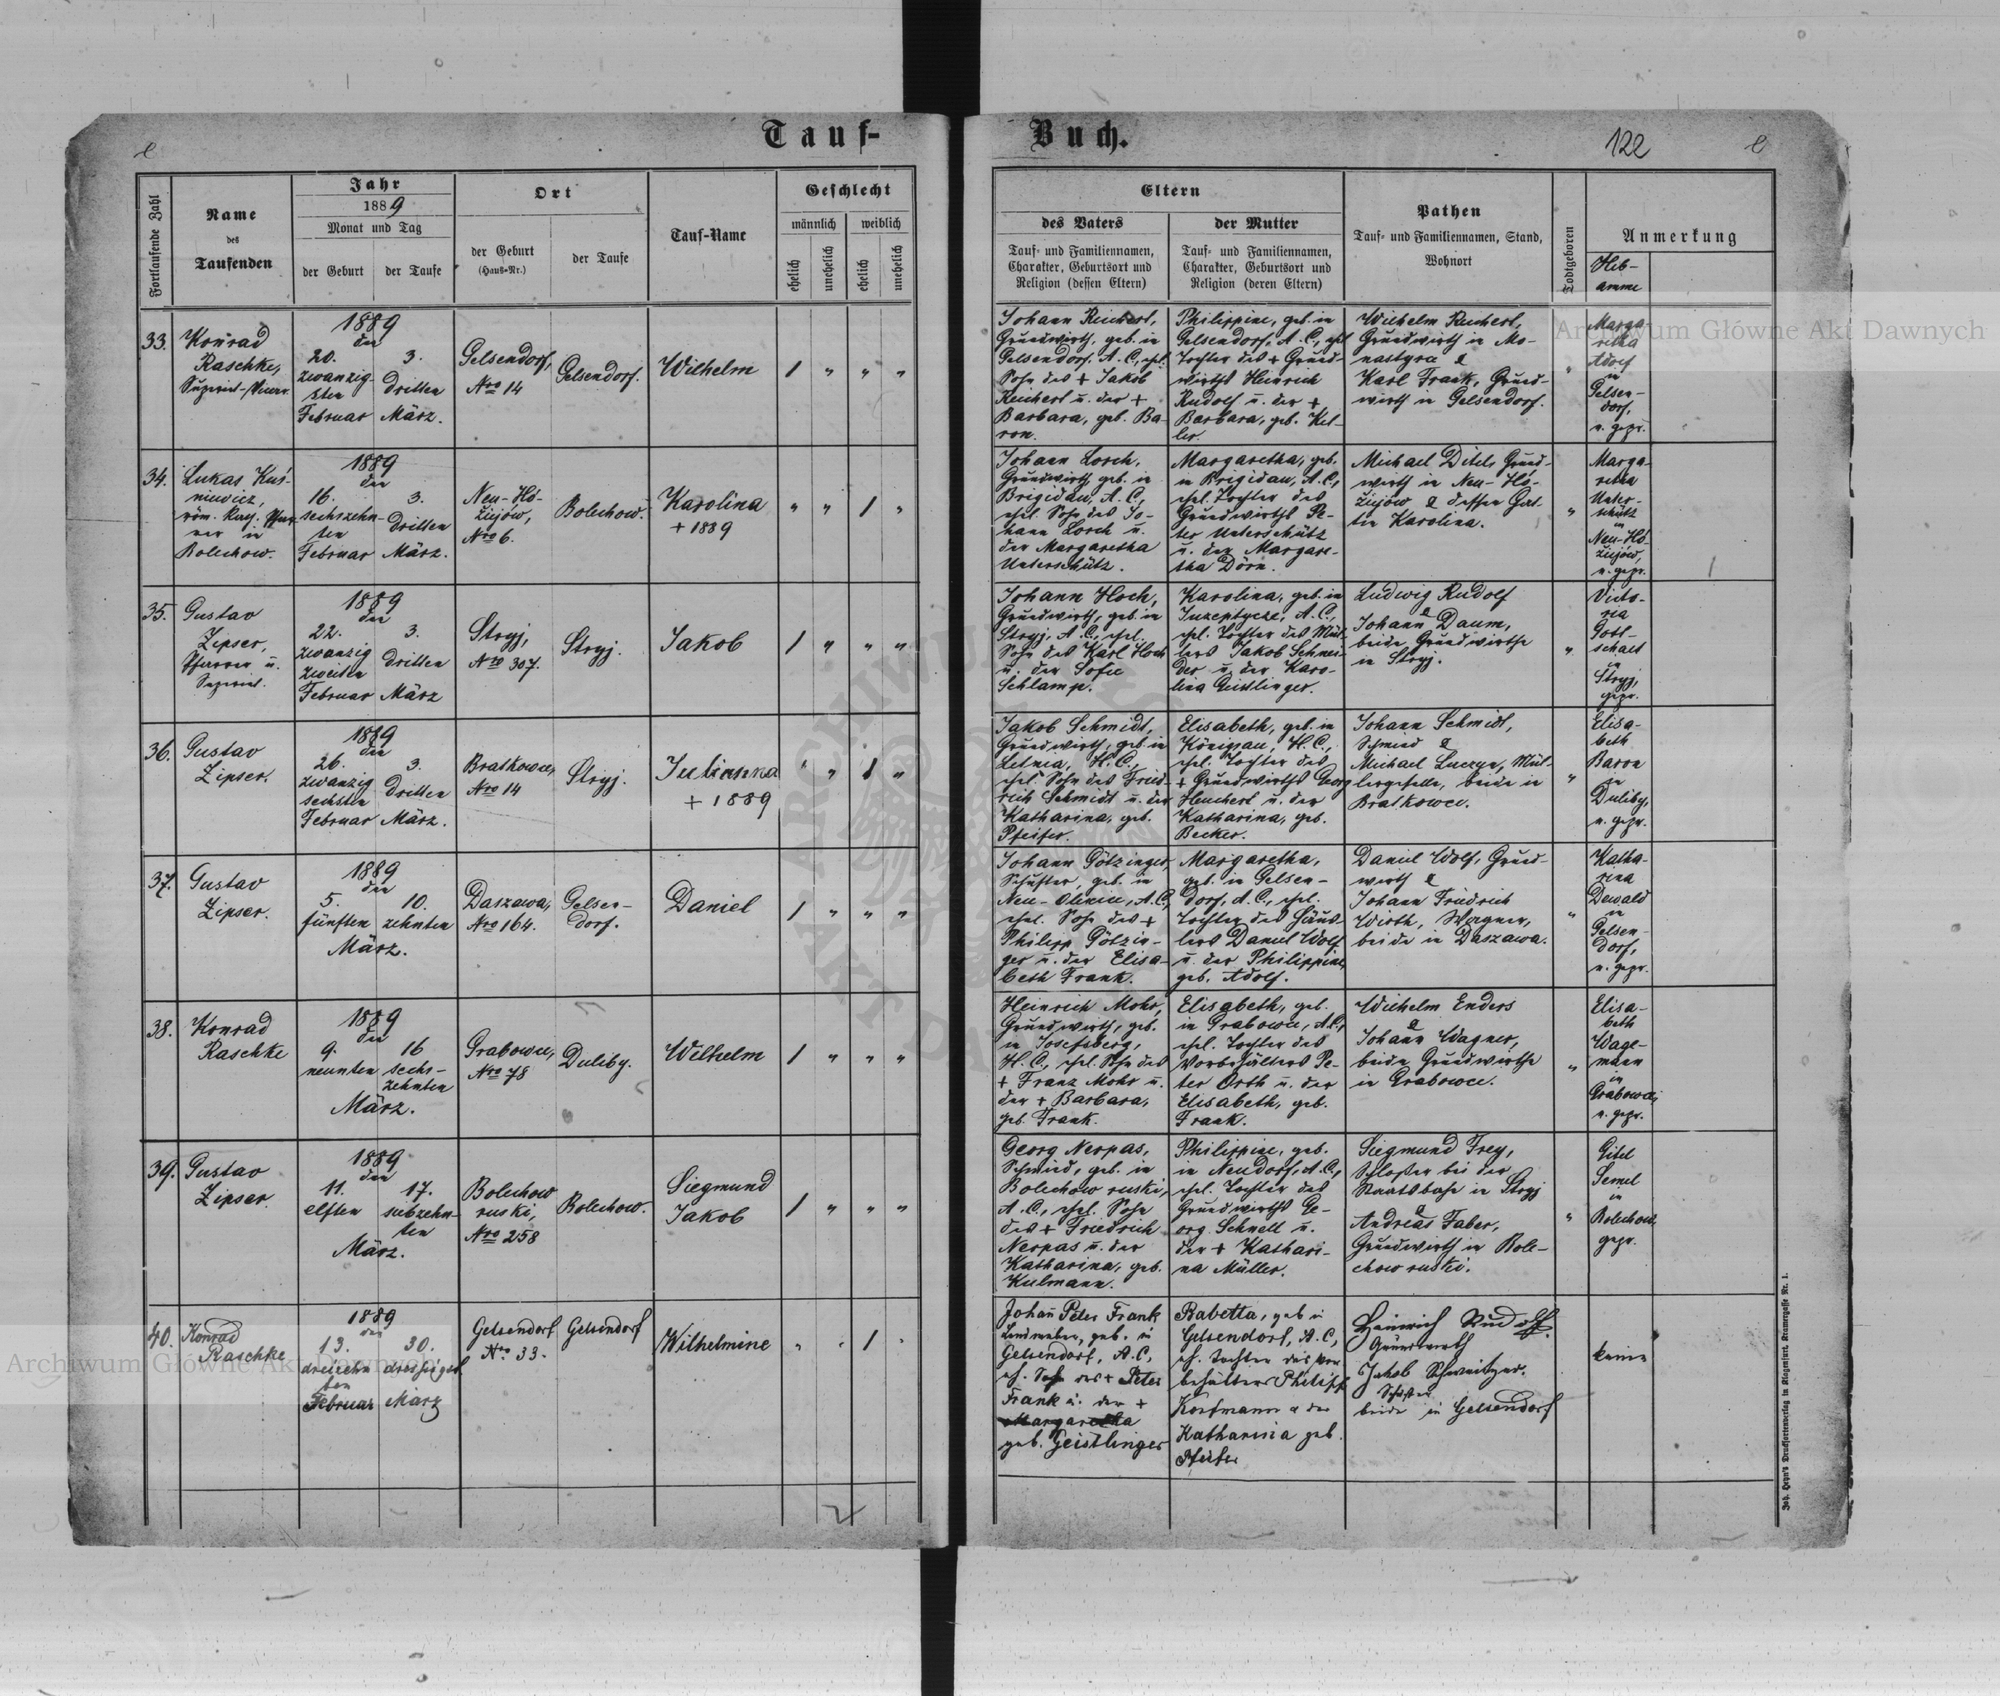 Tauf-
Buch.
122
Fortlaufende Zahl
Name
des
Taufenden
Jahr
1889
Monat und Tag
der Geburt
der Taufe
Ort
der Geburt
(Haus-Nr.)
der Taufe
Tauf-Name
Geschlecht
männlich
weiblich
ehelich
unehelich
ehelich
unehelich
Eltern
des Vaters
Tauf- und Familiennamen,
Charakter, Geburtsort und
Religion (dessen Eltern)
der Mutter
Tauf- und Familiennamen,
Charakter, Geburtsort und
Religion (deren Eltern)
Pathen
Tauf- und Familiennamen, Stand,
Wohnort
Todtgeboren
Anmerkung
Heb-
amme
33.
Konrad
Raschke,
1889
den
20.
zwanzig-
sten
Februar
3.
dritten
März.
Gelsendorf,
Nro 14
Gelsendorf.
Wilhelm
Johann Reichert,
Grundwirth, geb. in
Gelsendorf, A. C., ehel.
Sohn des + Jakob
Reichert u. der +
Barbara, geb. Ba-
ron.
Philippine, geb. in
Gelsendorf, A. C., ehel.
Tochter des + Grund-
wirths Heinrich
Rudolf u. der +
Barbara, geb. Kel-
ler.
Wilhelm Reichert,
Grundwirth in Mo-
nastyrce &
Karl Frank, Grund-
wirth in Gelsendorf.
Marga-
retha
Adolf
in
Gelsen-
dorf,
n. gepr.
34.
Lukas Kuś-
niewicz,
röm. kath. Pfar-
rer in
Bolechow.
1889
den
16.
sechszehn-
ten
Februar
3.
dritten
März.
Neu-Ho-
ziejów,
Nro 6.
Bolechow.
Karolina
+ 1889
Johann Lorch,
Grundwirth, geb. in
Brigidau, A. C.,
ehel. Sohn des Jo-
hann Lorch u.
der Margaretha
Unterschütz.
Margaretha, geb.
in Brigidau, A. C.,
ehel. Tochter des
Grundwirths Pe-
ter Unterschütz
u. der Margare-
tha Dörn.
Michael Ditels Grund-
wirth in Neu-Ho-
ziejów & dessen Gat-
tin Karolina.
Marga-
retha
Unter-
schütz
in
Neu-Ho-
ziejów,
n. gepr.
35.
Gustav
Zipser,
Pfarrer u.
Seniorat.
1889
den
22.
zwanzig
zweiten
Februar
3.
dritten
März
Stryj,
Nro 307.
Stryj.
Jakob
Johann Hoch,
Grundwirth, geb. in
Stryj, A. C., ehel.
Sohn des Karl Hoch
u. der Sofie
Schlamp.
Karolina, geb. in
A. C.,
ehel. Tochter des Mül-
lers Jakob Schnei-
der u. der Karo-
lina Geistlinger.
Ludwig Rudolf
&
Johann Daum,
beide Grundwirthe
in Stryj.
Victo-
ria
Gott-
schalt
in
Stryj,
gepr.
36.
Gustav
Zipser.
1889
den
26.
zwanzig
sechsten
Februar
3.
dritten
März.
Bratkowce,
Nro 14
Stryj.
Julianna
+ 1889
Jakob Schmidt,
Grundwirth, geb. in
Letnia, H. C.,
ehel. Sohn des Fried-
rich Schmidt u. der
Katharina, geb.
Pfeifer.
Elisabeth, geb. in
Königsau, H. C.,
ehel. Tochter des
+ Grundwirths Georg
Heuchert u. der
Katharina, geb.
Becker.
Johann Schmidt,
Schmied &
Michael Luczyn, Mül-
lergeselle, beide in
Bratkowce.
Elisa-
beth
Baron
in
Duliby,
n. gepr.
37.
Gustav
Zipser.
1889
den
5.
fünften
10.
zehnten
März.
Daszawa,
Nro 164.
Gelsen-
dorf.
Daniel
Johann Götzinger,
Schuster, geb. in
Neu-Oleksic, A. C.,
ehel. Sohn des +
Philipp Götzin-
ger u. der Elisa-
beth Frank.
Margaretha,
geb. in Gelsen-
dorf, A. C., ehel.
Tochter des Häus-
lers Daniel Wolf
u. der Philippine,
geb. Adolf.
Daniel Wolf, Grund-
wirth &
Johann Friedrich
Wirth, Wagner,
beide in Daszawa.
Katha-
rina
Dewald
in
Gelsen-
dorf,
n. gepr.
38.
Konrad
Raschke
1889
den
9.
neunten
16
sechs-
zehnten
März.
Grabowce,
Nro 78
Duliby.
Wilhelm
Heinrich Mohr,
Grundwirth, geb.
in Josefsberg,
H. C., ehel. Sohn des
+ Franz Mohr u.
der + Barbara,
geb. Frank.
Elisabeth, geb.
in Grabowce, A. C.,
ehel. Tochter des
Vorbehälters Pe-
ter Orth u. der
Elisabeth, geb.
Frank.
Wilhelm Enders
&
Johann Wagner,
beide Grundwirthe
in Grabowce.
Elisa-
beth
Wage-
mann
in
Grabowce,
n. gepr.
39.
Gustav
Zipser.
1889
den
11.
elften
17.
siebzehn-
ten
März.
Bolechow
ruski,
Nro 258
Bolechow.
Siegmund
Jakob
Georg Nerpas,
Schmied, geb. in
Bolechow ruski,
A. C., ehel. Sohn
des + Friedrich
Nerpas u. der
Katharina, geb.
Kulmann.
Philippine, geb.
in Neudorf, A. C.,
ehel. Tochter des
Grundwirths Ge-
org Schnell u.
der + Kathari-
na Müller.
Siegmund Frey,
Schlosser bei der
Staatsbahn in Stryj
&
Andreas Faber,
Grundwirth in Bole-
chow ruski.
Gitel
Semel
in
Bolechow,
gepr.
40.
Konrad
Raschke
1889
den
13.
dreizehn
ten
Februar
30.
dreißigst.
März
Gelsendorf
Nro 33.
Gelsendorf
Wilhelmine
Johan Peter Frank
Leinweber, geb. in
Gelsendorf, A. C.,
eh. Sohn des + Peter
Frank u. der +
Margaretha
geb. Geistlinger
Babetta, geb in
Gelsendorf, A. C.,
eh. Tochter des Vor
behälters Philipp
Korfmann u der
Katharina geb.
Pfeifer
Heinrich Rudolf.
Grundwirth
Jakob Schweitzer.
Schuster
beide in Gelsendorf
keine
Joh. Heyn's Drucksortenverlag in Klagenfurt, Kramergasse Nr. 1.
Archiwum Główne Akt Dawnych
Archiwum Główne Akt Dawnych